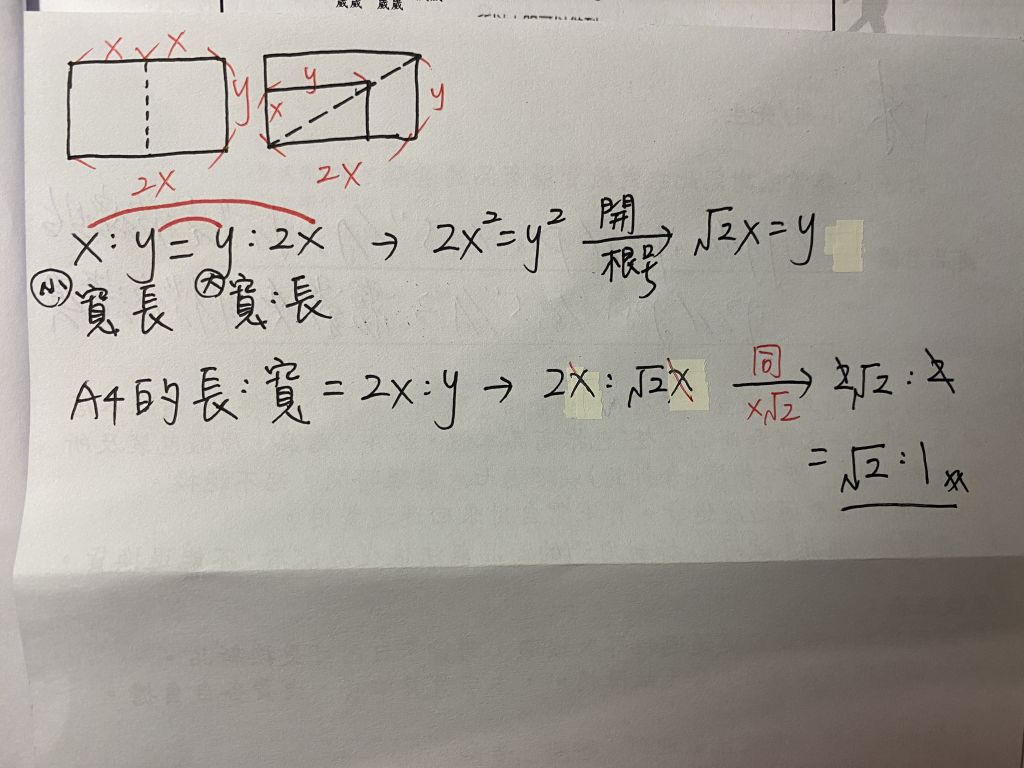 x x
y
2x
y
x
y
2x
x : y = y : 2x → 2x² = y² 開根号 → √2x = y
小 寬 長 大 寬 : 長
A4的長 : 寬 = 2x : y → 2x : √2x 同 x√2 → 2√2 : 2
= √2 : 1